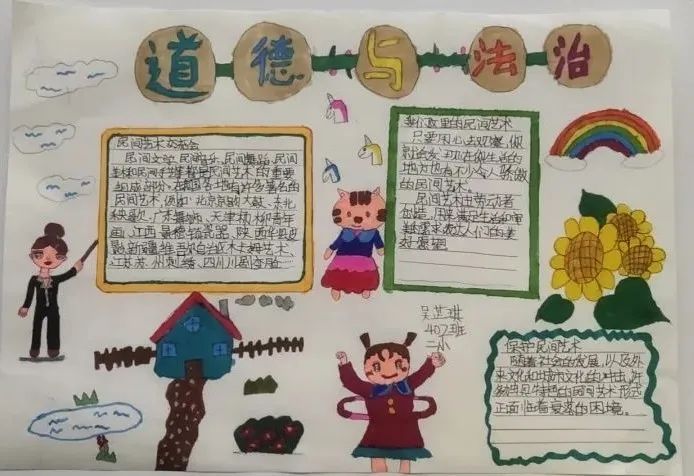 道德与法治
民间艺术交流会
民间文学、民间音乐、民间舞蹈、民间
美术和民间手工 是民间艺术的重要
组成部分。在我国各地有许多著名的
民间艺术，例如：北京京韵大鼓、东北
秧歌、广东舞狮、天津杨柳青年
画、江西景德镇瓷器、陕西华县皮
影、新疆维吾尔自治区木卡姆艺术、
江苏苏州刺绣、四川川剧变脸。
我们这里的民间艺术
只要用心去观察，你
就会发现，在你生活的
地方也有不少令人骄傲
的民间艺术。
民间艺术由劳动者
创造，用来满足生活和审
美需求，表达人们的美
好愿望。
吴芷琪
407班
二小
保护民间艺术
随着社会的发展，以及外
来文化和城市文化的冲击，许
多独具特色的民间艺术形式
正面临着衰落的困境。